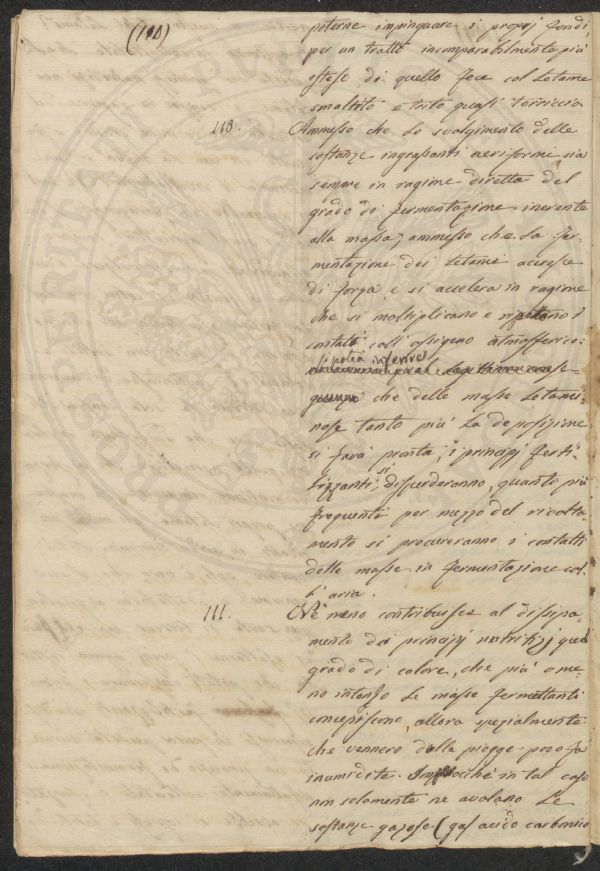 (110)
poterne impinguare i proprj fondi,
per un tratto incomparabilmente più
esteso di quello fece col Letame
smaltito e trito quasi terriccio
110. Ammesso che lo svolgimento delle
sostanze ingrassanti aeriformi sia
sempre in ragione diretta del
grado di fermentazione inerente
alla massa; ammesso che la fer-
mentazione dei Letami accresce
di forza, e si accelera in ragione
che si moltiplicano e ripetono i
contatti coll'ossigeno atmosferico:
si potrà inferire
che delle masse Letami-
nose tanto più la deposizione
si farà pronta, i principj ferti-
lizzanti si disperderanno, quanto più
frequenti per mezzo del rivolta-
mento si procureranno i contatti
delle masse in fermentazione col-
l'aria.
111. Nè meno contribuisce al dissipa-
mento dei principj nutritizj quel
grado di calore, che più o me-
no intenso le masse fermentanti
concepiscono, allora spezialmente
che vennero dalle piogge poco fa
inumidite. Imperocchè in tal caso
non solamente ne avolano le
sostanze gazose (gas acido carbonico